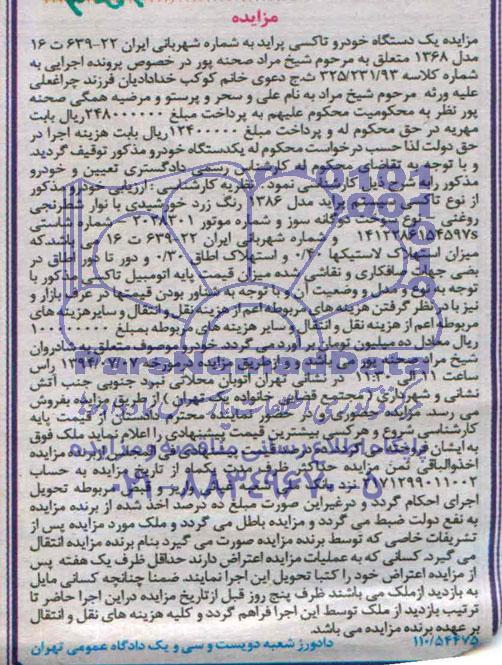 مزایده
مزایده یک دستگاه خودرو تاکسی پراید به شماره شهربانی ایران ۲۲-۶۳۹ ت ۱۶
مدل ۱۳۶۸ متعلق به مرحوم شیخ مراد صحنه پور در خصوص پرونده اجرایی به
شماره کلاسه ۳۲۵/۲۳۱/۹۳ ش.ج دعوی خانم کوکب خدادادیان فرزند چراغعلی
علیه ورثه مرحوم شیخ مراد به نام علی و سحر و پرستو و مرضیه همگی صحنه
پور نظر به محکومیت محکوم علیهم به پرداخت مبلغ ۲۴۸۰۰۰۰۰۰ ریال بابت
مهریه در حق محکوم له و پرداخت مبلغ ۱۲۴۰۰۰۰۰ ریال بابت هزینه اجرا در
حق دولت لذا حسب درخواست محکوم له یکدستگاه خودرو مذکور توقیف گردید.
و با توجه به تقاضای محکوم له کارشناس رسمی دادگستری تعیین و خودرو
مذکور را به شرح ذیل کارشناسی نمود: نظریه کارشناسی: ارزیابی خودرو مذکور
از نوع تاکسی سیستم پراید مدل ۱۳۸۶ رنگ زرد خورشیدی با نوار شطرنجی
روغنی نوع سوخت دوگانه سوز و شماره موتور شماره شاسی
و شماره شهربانی ایران ۲۲-۶۳۹ ت ۱۶ می باشد که
میزان استهلاک لاستیکها ۰/۴۰ و استهلاک اطاق ۰/۳۰ و دور تا دور اطاق در
بعضی جهات صافکاری و نقاشی شده میزان قیمت پایه اتومبیل تاکسی مذکور با
توجه به نوع و مدل و وضعیت آن و با توجه به شناور بودن قیمتها در عرف بازار و
نیز با در نظر گرفتن هزینه های مربوطه اعم از هزینه نقل و انتقال و سایر هزینه های
مربوطه اعم از هزینه نقل و انتقال و سایر هزینه های مربوطه بمبلغ ۱۰۰۰۰۰۰۰۰
ریال معادل ده میلیون تومان برآورد می گردد. خودرو موصوف متعلق به شادروان
شیخ مراد صحنه پور می باشد و از طریق مزایده در مورخه ۱۳۹۴/۰۷/۰۷ راس
ساعت ۱۱ الی ۱۱:۳۰ در نشانی تهران اتوبان محلاتی نبرد جنوبی جنب آتش
نشانی و شهرداری (مجتمع قضایی خانواده یک تهران) از طریق مزایده بفروش
می رسد. مزایده حضوری و با حضور نماینده محترم دادستان از قیمت پایه
کارشناسی شروع و هرکسی بیشترین قیمت پیشنهادی را اعلام نماید ملک فوق
به ایشان فروخته
الباقی ثمن مزایده حداکثر ظرف مدت یکماه از تاریخ مزایده به حساب
نزد بانک واریز و فیش مربوطه تحویل
اجرای احکام گردد و درغیراین صورت مبلغ ده درصد اخذ شده از برنده مزایده
به نفع دولت ضبط می گردد و مزایده باطل می گردد و ملک مورد مزایده پس از
تشریفات خاصی که توسط برنده مزایده صورت می گیرد بنام برنده مزایده انتقال
می گیرد. کسانی که به عملیات مزایده اعتراض دارند حداقل ظرف یک هفته پس
از مزایده اعتراض خود را کتبا تحویل این اجرا نمایند. ضمنا چنانچه کسانی مایل
به بازدید ازملک می باشند ظرف پنج روز قبل ازتاریخ مزایده دراین اجرا حاضر تا
ترتیب بازدید از ملک توسط این اجرا فراهم گردد و کلیه هزینه های نقل و انتقال
بر عهده برنده مزایده می باشد.
۱۱۰/۵۴۴۷۵ دادورز شعبه دویست و سی و یک دادگاه عمومی تهران
ParsNamadData
پایگاه اطلاع رسانی مناقصه و مزایده
۰۲۱-۸۸۳۴۹۶۷۰-۵